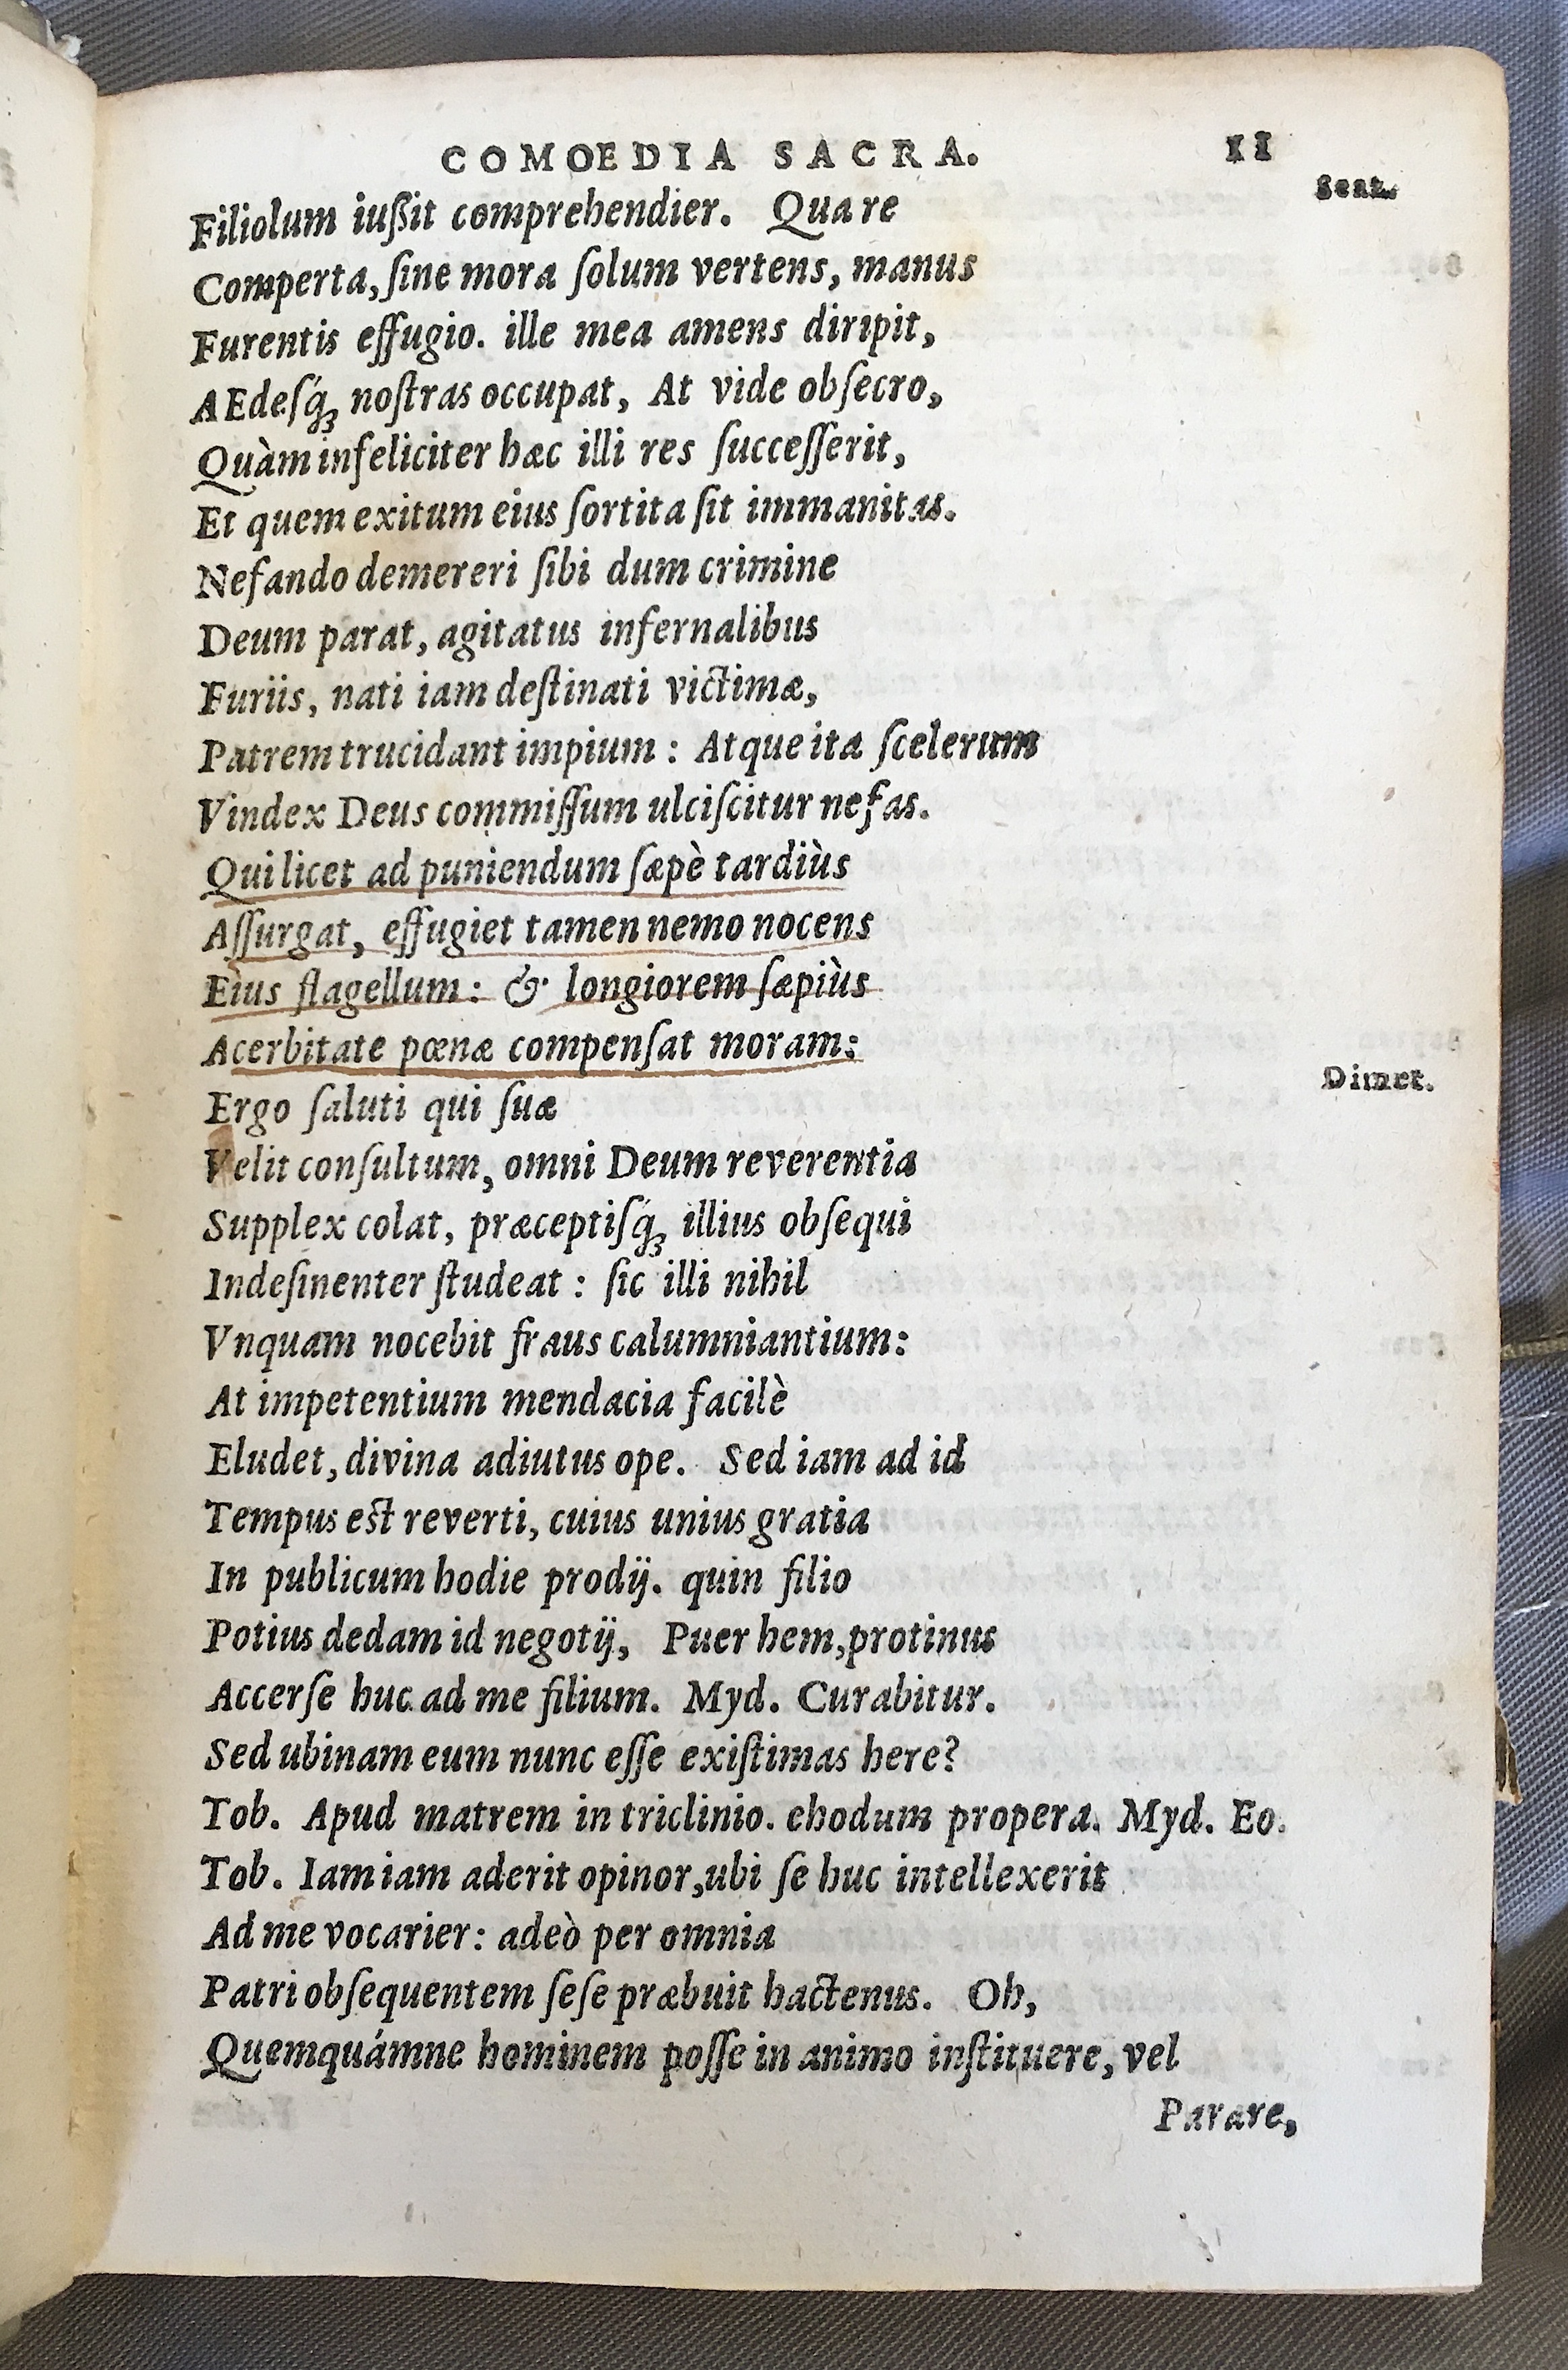 COMOEDIA SACRA. 11
Senar.
Filiolum iußit comprehendier. Qua re
Comperta, ſine mora ſolum vertens, manus
Furentis effugio. ille mea amens diripit,
AEdeſq́ꝫ noſtras occupat, At vide obſecro,
Quàm infeliciter hæc illi res ſucceſſerit,
Et quem exitum eius ſortita ſit immanitas.
Nefando demereri ſibi dum crimine
Deum parat, agitatus infernalibus
Furiis, nati iam deſtinati victimæ,
Patrem trucidant impium : Atque ita ſcelerum
Vindex Deus commiſſum ulciſcitur nefas.
Qui licet ad puniendum ſæpè tardiùs
Aſſurgat, effugiet tamen nemo nocens
Eius flagellum : & longiorem ſæpiùs
Acerbitate pœnæ compenſat moram:
Ergo ſaluti qui ſuæ
Dimet.
Velit conſultum, omni Deum reverentia
Supplex colat, præceptiſq́ꝫ illius obſequi
Indeſinenter ſtudeat : ſic illi nihil
Vnquam nocebit fraus calumniantium:
At impetentium mendacia facilè
Eludet, divina adiutus ope. Sed iam ad id
Tempus eſt reverti, cuius unius gratia
In publicum hodie prodij. quin filio
Potius dedam id negotij, Puer hem, protinus
Accerſe huc ad me filium. Myd. Curabitur.
Sed ubinam eum nunc eſſe exiſtimas here?
Tob. Apud matrem in triclinio. ehodum propera. Myd. Eo.
Tob. Iam iam aderit opinor, ubi ſe huc intellexerit
Ad me vocarier: adeò per omnia
Patri obſequentem ſeſe præbuit hactenus. Oh,
Quemquámne hominem poſſe in animo inſtituere, vel
Parare,